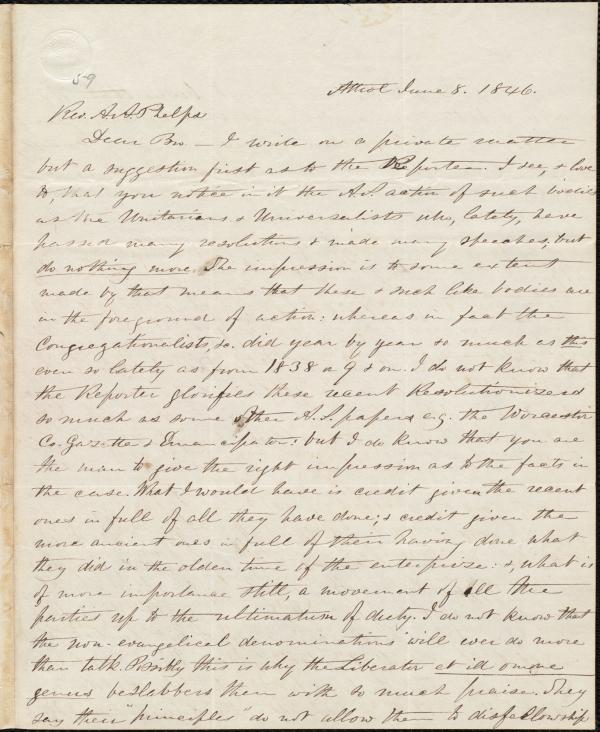 59
Athol June 8. 1846.
Rev. A. A. Phelps
Dear Bro — I write on a private matter
but a suggestion first as to the Reporter. I see, & love
to, that you notice in it the A.S. action of such bodies
as the Unitarians & Universalists who, lately, have
passed many resolutions & made many speeches, but
do nothing more. The impression is to some extent
made by that means that these & such like bodies are
in the foreground of action: whereas in fact the
Congregationalists, &c. did year by year so much as this
even so lately as from 1838 or 9 & on. I do not know that
the Reporter glorifies these recent Resolutionizers
so much as some other A.S. papers e.g. the Worcester
Co. Gazette & Emancipator: but I do know that you are
the man to give the right impression as to the facts in
the case. What I would have is credit given the recent
ones in full of all they have done; & credit given the
more ancient ones in full of their having done what
they did in the olden time of the enterprize: &, what is
of more importance still, a movement of all the
parties up to the ultimatum of duty. I do not know that
the non-evangelical denominations will ever do more
than talk. Possibly this is why the Liberator et id omne
genus beslabbers them with so much praise. They
say their "principles" do not allow them to disfellowship